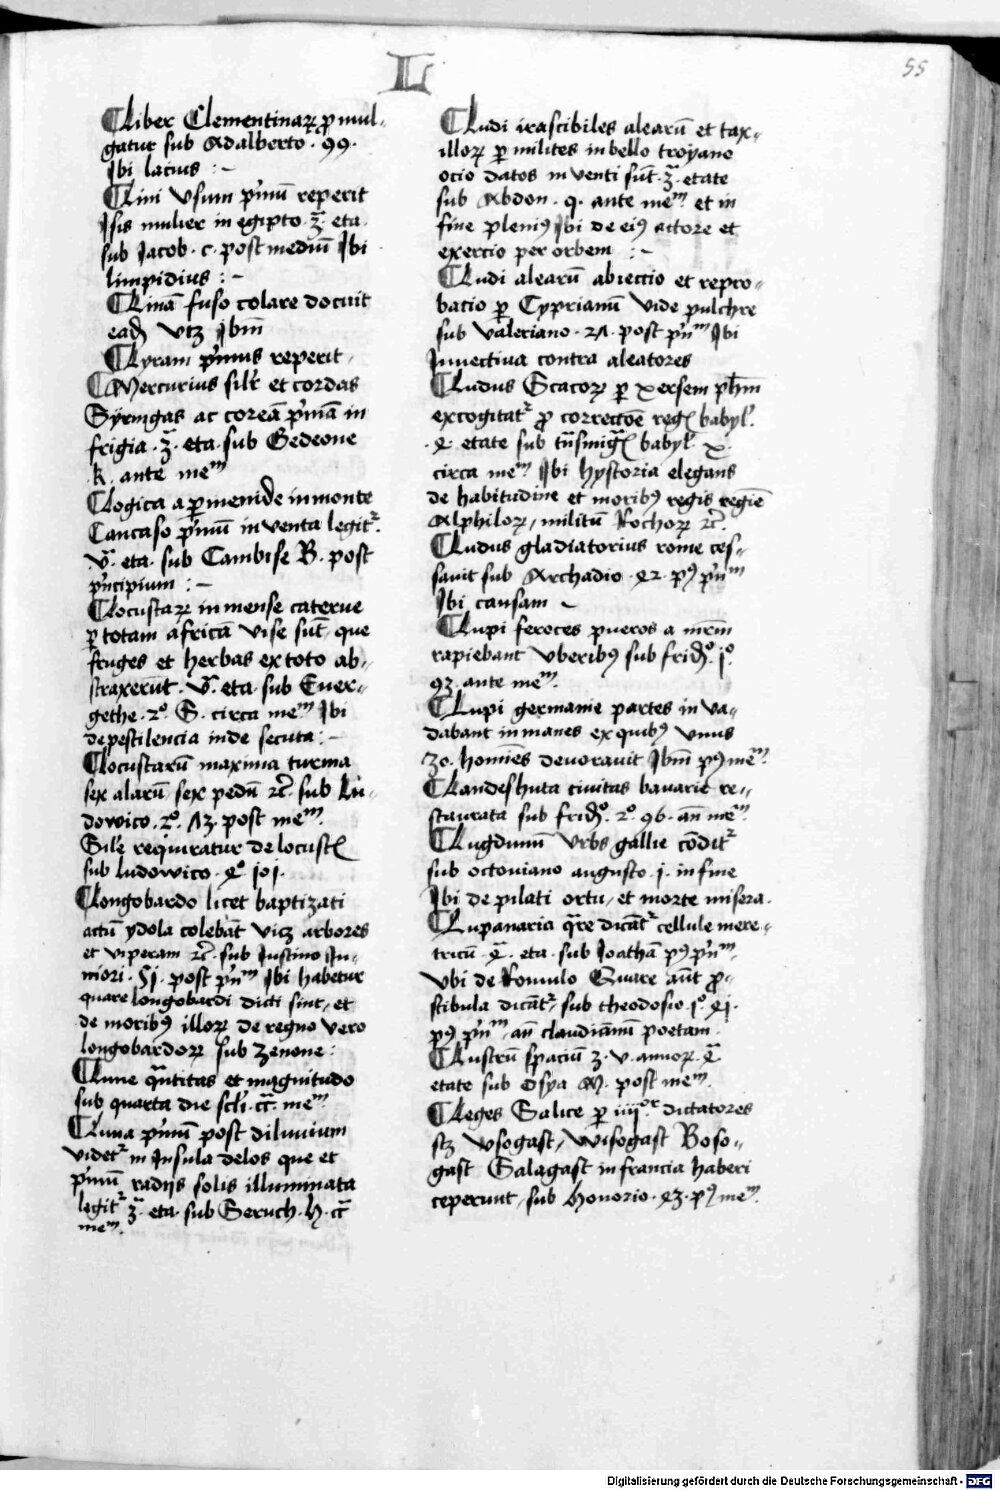 L
55
Liber Clementinaꝝ ꝓmul-
gatur sub Adalberto · 99 ·
Ibi lacius : ~
Lini vsum pͥmū reperit
Isis mulier in egipto · 3ᷓ · eta ·
sub Jacob · c · post mediū Ibi
limpidius : ~
Linā fuso colare docuit
eadē vtꝫ ibm̄
Lyram pͥmus reperit ,
Mercurius silr̄ et cordas
Syringas ac coreā pͥmā in
frigia · 3ᷓ · eta · sub Gedeone
k · ante meᵐ
Logica a ꝑmenide in monte
Caucaso pͥmū inventa legitᷣ ·
vᷓ · eta · sub Cambise B · post
pͥncipium : ~
Locustaꝝ inmense caterue
ꝑ totam africā vise sūt , que
fruges et herbas ex toto ab-
straxerūt · vᷓ · eta · sub Euer-
gethe · 2º · S · circa meᵐ Ibi
de pestilencia inde secuta : ~
Locustarū maxima turma
sex alarū sex pedū ⁊c̄ · sub Lu-
dowico · 2º · Λ3 · post meᵐ ·
Sile requiratur de locustꝭ
sub ludowico · 4º · joj ·
Longobardo licet baptizati
actū ydola colebāt vicꝫ arbores
et viperam ⁊c̄ · sub Justino Ju-
niori · Sj · post pͥnᵐ Ibi habetur
quare longobardi dicti sint , et
de moribꝰ illoꝝ de regno vero
longobardoꝝ sub zenone :
Lune qᷓntitas et magnitudo
sub quarta die scl̄i · cͥᷓ · meᵐ
Luna pͥmū post diluuium
videtᷣ in Insula delos que et
pͥmū radijs solis illuminata
legitᷣ 3ᷓ · eta · sub Seruch · h · cͥᷓ
meᵐ ·
Ludi irascibiles alearū et tax-
illoꝝ ꝑ milites in bello troyano
ocio datos inventi sūt · 3ᷓ · etate
sub Abdon · q · ante meᵐ et in
fine pleniꝰ Ibi de eiꝰ actore et
exercio per orbem : ~
Ludi alearū abiectio et repro-
batio ꝑ Cyprianū vide pulchre
sub valeriano · 2Λ · post pͥnᵐ Ibi
Inuectiua contra aleatores
Ludus Scacoꝝ ꝑ xersem ph̄m
excogitatᷣ ꝓ correctōe regꝭ babyl̓ ·
· 4 · etate sub tn̄smigꝭ babyl̓ · x ·
circa meᵐ Ibi hystoria elegans
de habitudine et moribꝰ regis regīe
Alphiloꝝ , militū Rochoꝝ ⁊c̄ ·
Ludus gladiatorius rome ces-
sauit sub Archadio · 42 · pꝰ pͥnᵐ
Ibi causam ~
Lupi feroces pueros a mr̄m
rapiebant vberibꝰ sub fridº · jº ·
93 · ante meᵐ ·
Lupi germanie partes inva-
dabant inmanes ex quibꝰ vnus
30 · homīes deuorauit Ibm̄ pꝰ meᵐ ·
Landeshuta ciuitas bauarie re-
staurata sub fridº · 2º · 96 · an̄ meᵐ ·
Lugdunū vrbs gallie cōditᷣ
sub octouiano augusto · j · in fine
Ibi de pilati ortu , et morte misera ·
Lupanaria qͣre dicātᷣ cellule mere-
tricū · 4ᷓ · eta · sub Joathā pꝰ pͥnᵐ ·
vbi de Romulo Quare aūt ꝓ-
stibula dicātᷣ , sub theodosio · jº · 4j ·
pꝰ pͥnᵐ , an̄ claudianū poetam ·
Lustrū spacium 3 · v · annoꝝ · 4ᷓ
etate sub Osya M · post meᵐ ·
Leges Salice ꝑ iiijᵒʳ dictatores
scꝫ vsogast , wisogast Boso-
gast Salagast in francia haberi
ceperunt , sub honorio · 43 · pꝰ meᵐ ·
Digitalisierung gefördert durch die Deutsche Forschungsgemeinschaft - DFG